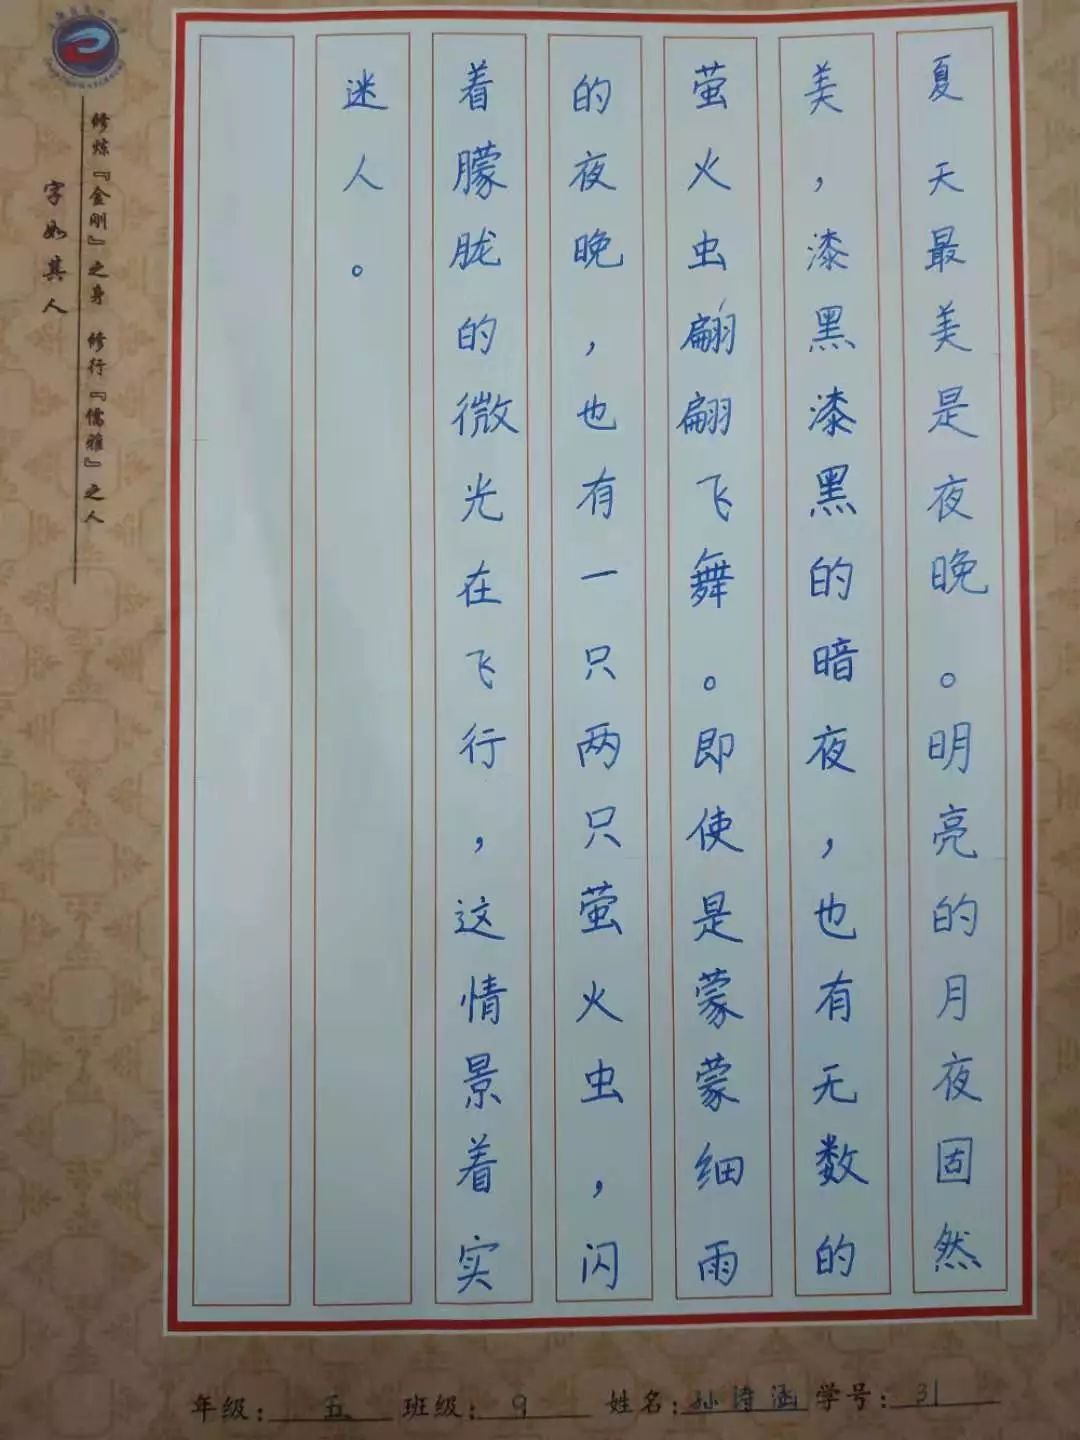 夏天最美是夜晚。明亮的月夜固然
美，漆黑漆黑的暗夜，也有无数的
萤火虫翩翩飞舞。即使是蒙蒙细雨
的夜晚，也有一只两只萤火虫，闪
着朦胧的微光在飞行，这情景着实
迷人。
修炼『金刚』之身 修行『儒雅』之人
字如其人
年级：五 班级：9 姓名：孙诗涵 学号：31